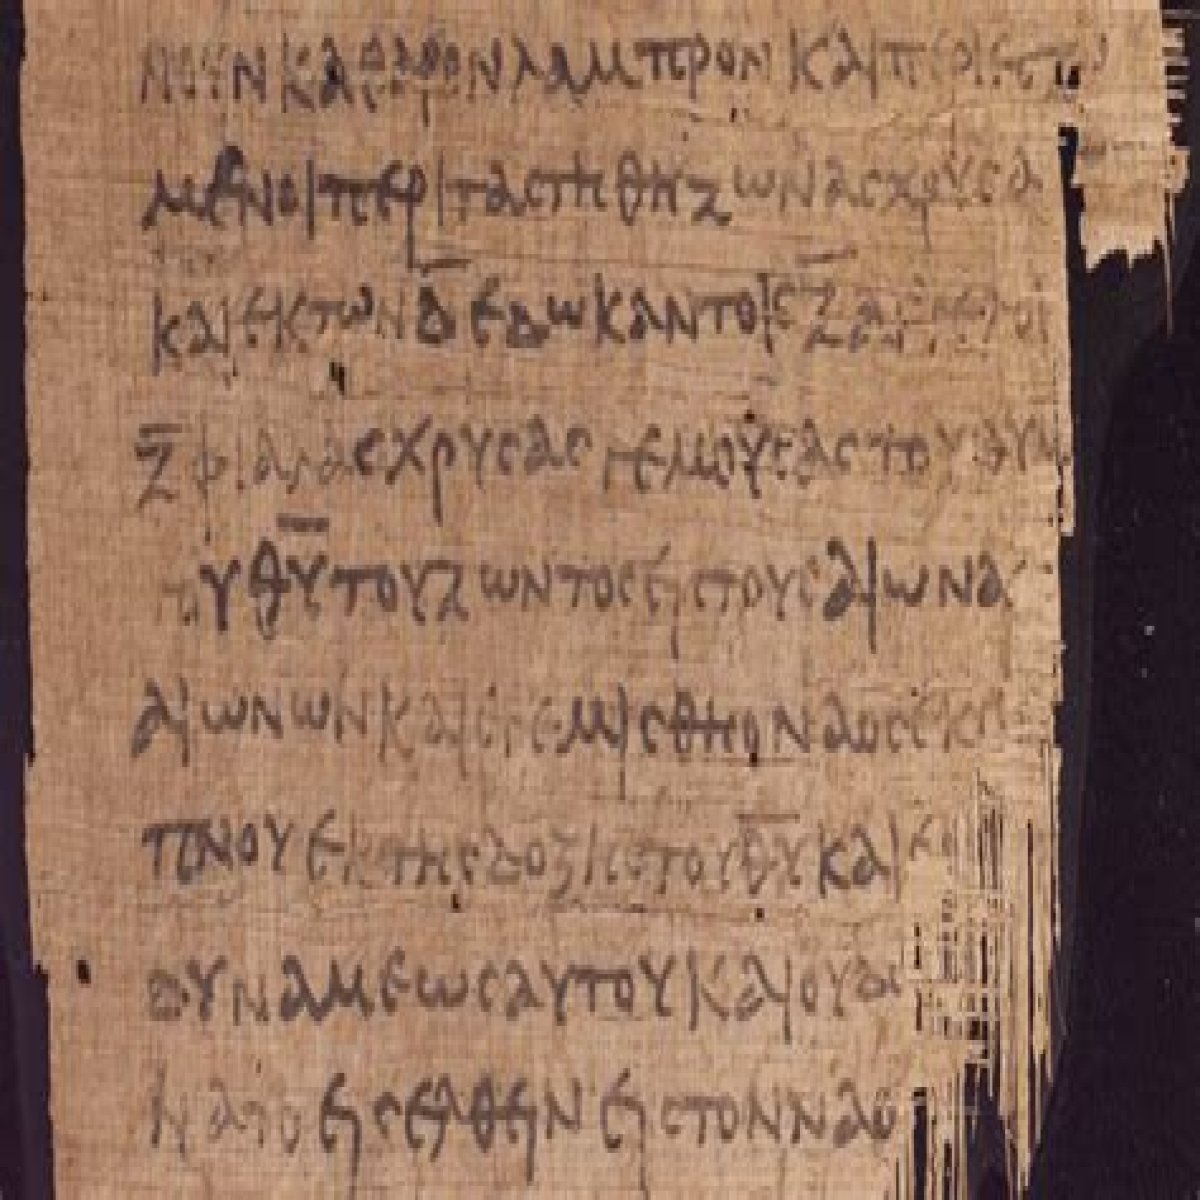 ΛΙΝΟΥΝ ΚΑΘΑΡΟΝ ΛΑΜΠΡΟΝ ΚΑΙ
ΜΕΝΟΙ ΠΕΡΙ ΤΑ ΣΤΗΘΗ ΖΩΝΑΣ ΧΡΥΣΑ
ΚΑΙ ΕΚ ΤΩΝ Δ̅ ΕΔΩΚΑΝ ΤΟΙΣ Ζ̅
Ζ̅ ΦΙΑΛΑΣ ΧΡΥΣΑΣ ΓΕΜΟΥΣΑΣ ΤΟΥ ΘΥΜ
ΤΟΥ Θ̅Υ̅ ΤΟΥ ΖΩΝΤΟΣ ΕΙΣ ΤΟΥΣ ΑΙΩΝΑΣ
ΑΙΩΝΩΝ ΚΑΙ ΕΓΕΜΙΣΘΗ Ο ΝΑΟΣ ΕΚ
ΠΝΟΥ ΕΚ ΤΗΣ ΔΟΞΗΣ ΤΟΥ Θ̅Υ̅ ΚΑΙ ΕΚ
ΔΥΝΑΜΕΩΣ ΑΥΤΟΥ ΚΑΙ ΟΥΔΕ
ΝΑΤΟ ΕΙΣΕΛΘΕΙΝ ΕΙΣ ΤΟΝ ΝΑΟ